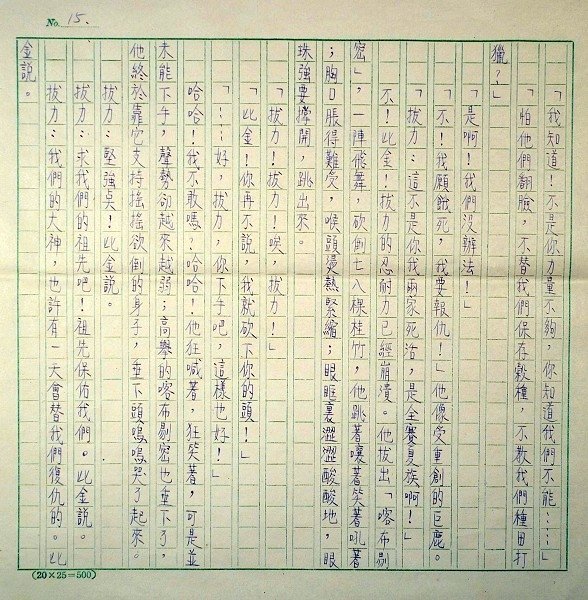 No. 15.
「我知道！不是你力量不夠，你知道我們不能……」
怕他們翻臉，不替我們保存穀種，不教我們種田打
獵？」
「是啊！我們沒辦法！」
「不！我願餓死，我要報仇！」他像受重創的巨鹿。
「拔力：這不是你我兩家死活，是全賽夏族啊！」
不！此金！拔力的忍耐力已經崩潰。他拔出「喀布剔
密」，一陣飛舞，砍倒七八棵桂竹，他跳著嚷著笑著吼著
；胸口脹得難受，喉頭燙熱緊縮；眼眶裏澀澀酸酸地，眼
珠強要擠開，跳出來。
「拔力！拔力！唉，拔力！」
「此金！你再不說，我就砍下你的頭！」
「！……好，拔力，你下手吧，這樣也好！」
哈哈！我不敢嗎？哈哈！他狂喊著，狂笑著，可是並
未能下手，聲勢卻越來越弱；高舉的喀布剔密也垂下了，
他終於靠它支持搖搖欲倒的身子，垂下頭嗚嗚哭了起來。
拔力：堅強點！此金說。
拔力：求我們的祖先吧！祖先保佑我們。此金說。
拔力：我們的大神，也許有一天會替我們復仇的。此
金說。
(20×25=500)